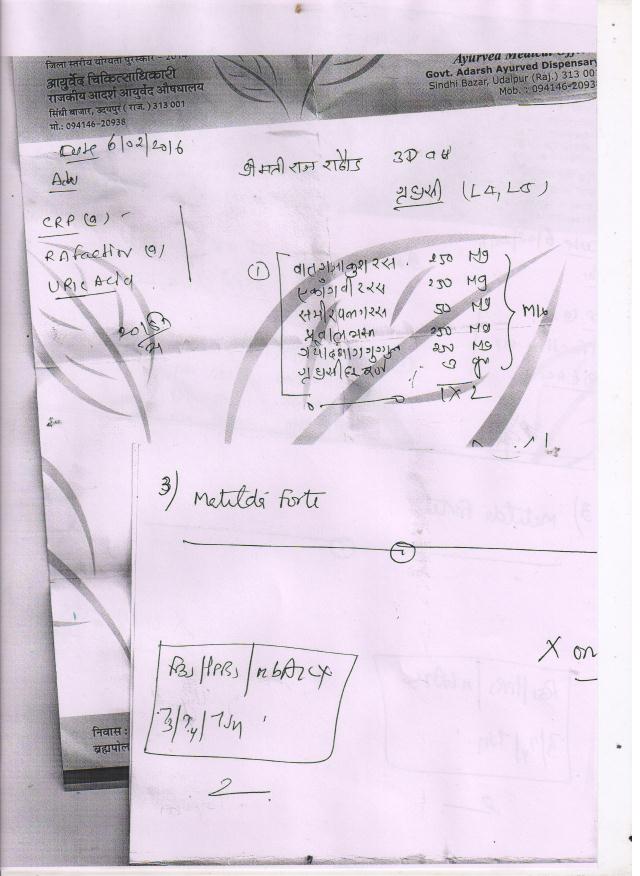 जिला स्तरीय योग्यता पुरस्कार - 2014
आयुर्वेद चिकित्साधिकारी
राजकीय आदर्श आयुर्वेद औषधालय
सिंधी बाजार, उदयपुर ( राज. ) 313 001
मो.: 094146-20938
Ayurved Medical
Govt. Adarsh Ayurved Dispensary
Sindhi Bazar, Udaipur (Raj.) 313 00
Mob. : 094146-2093
Date 6/02/2016
श्रीमती राज राठौड
Adv
गृध्रसी (L4, L5)
CRP (Q) -
RA factor (Q)
Uric Acid
①
वातगजांकुश रस . 250 Mg
एकांगवीर रस 250 Mg
समीरपन्नग रस 50 Mg
प्रवाल भस्म 250 Mg
त्रयोदशांग गुग्गुल 250 Mg
गृध्रसीहर चूर्ण 3
1 X 2
3) Metilda Forte
X on
T3/T4/TSH
2
निवास :
ब्रह्मपोल